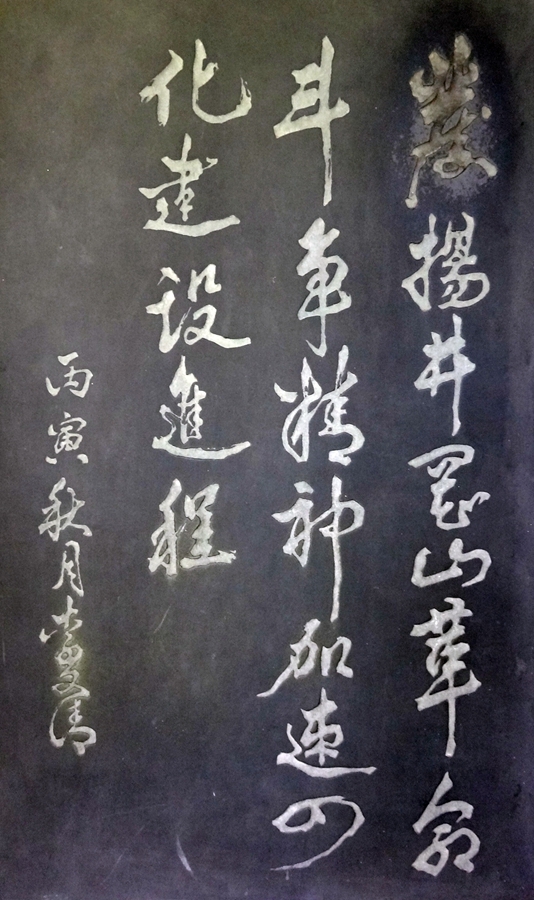 發揚井罡山革命
斗争精神加速四
化建設進程
丙寅秋月